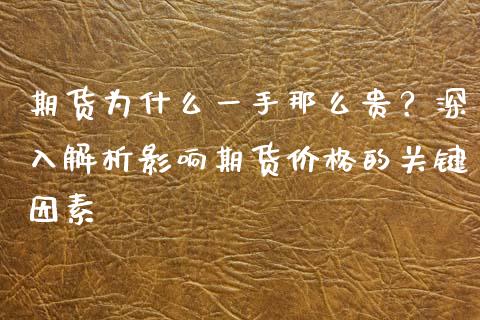 期货为什么一手那么贵？深
入解析影响期货价格的关键
因素